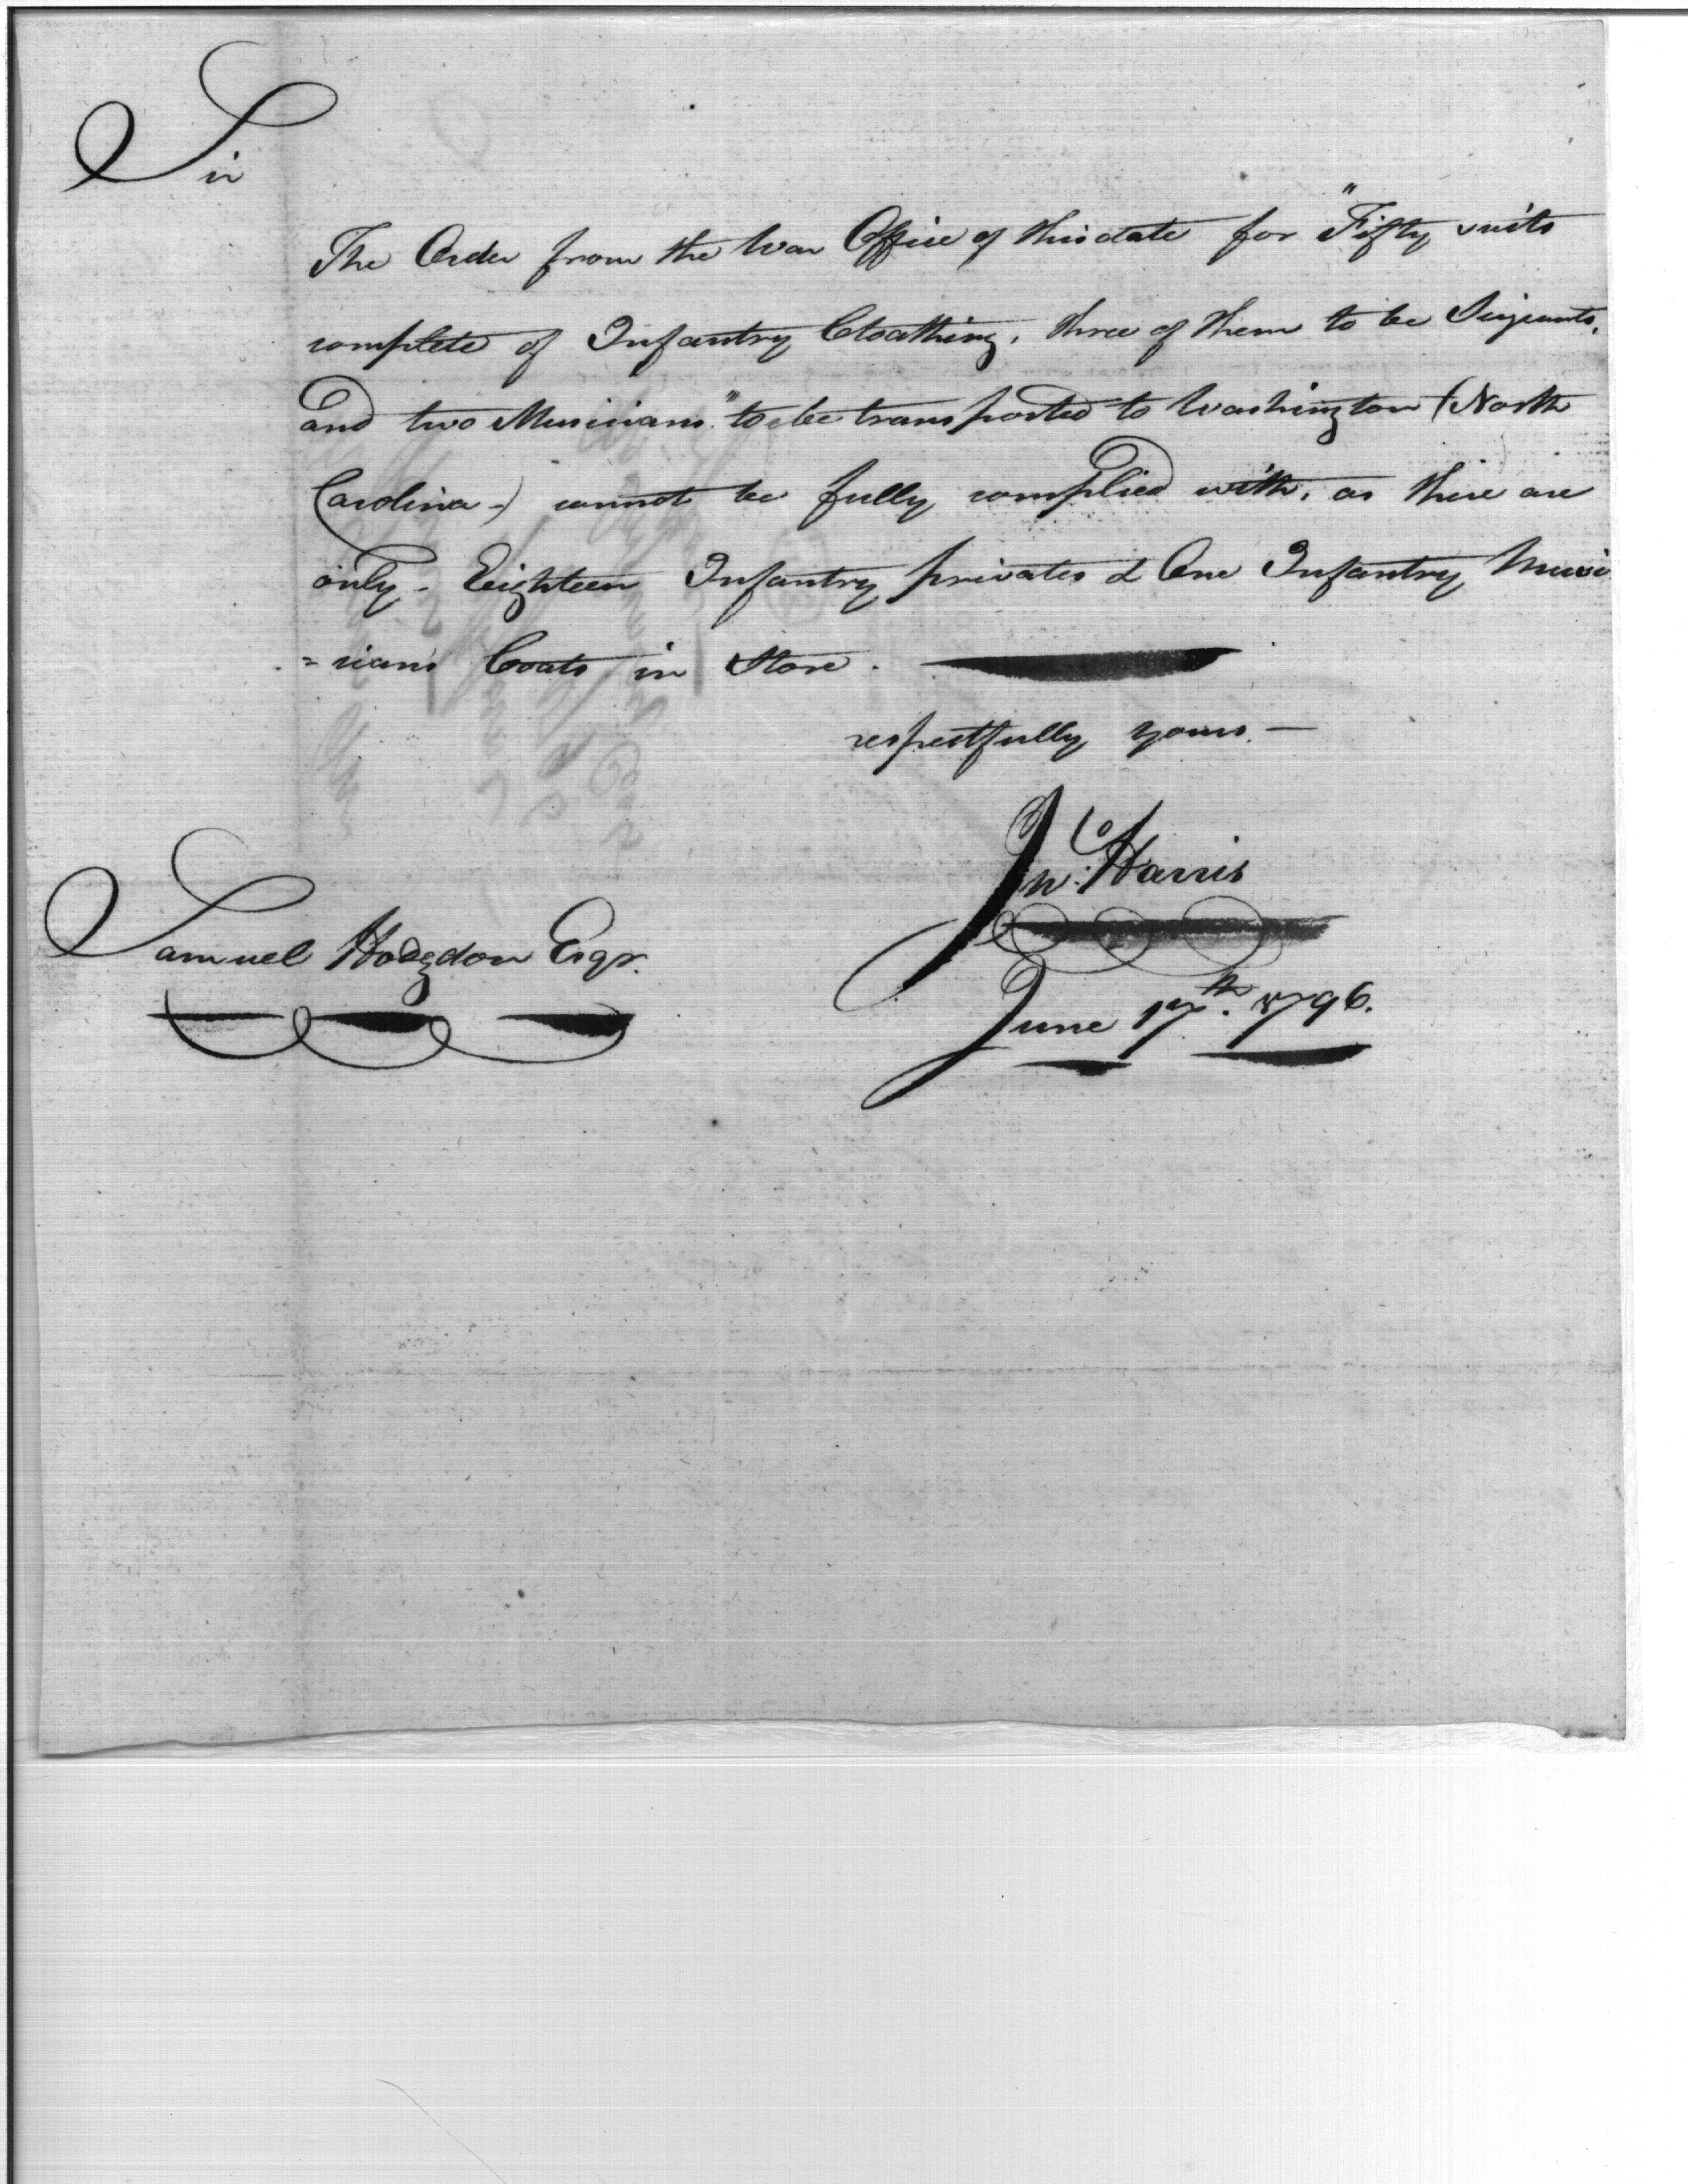 Sir
The Order from the War Office of this date for "Fifty suits
complete of Infantry Cloathing, three of them to be Serjeants,
and two Musicians" to be transported to Washington (North
Carolina-) cannot be fully complied with, as there are
only - Eighteen Infantry privates & One Infantry Musi
=cians Coats in Store.
respectfully yours. —
Jno. Harris
Samuel Hodgdon Esqr.
June 17th. 1796.